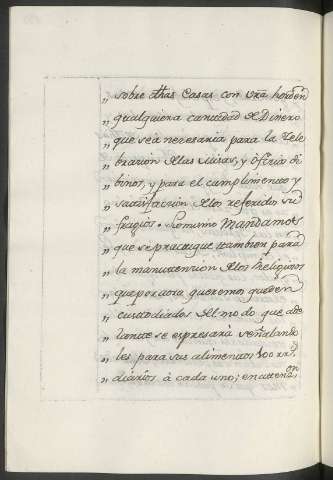 „ sobre dhas Casas con vrã horden
„ qualquiera cantidad de Dinero
„ que sea necesaria para la Zele
„ bracion de las Misas, y Oficios di
„ binos, y para el cumplimento y
„ satisfaccion de los referidos su
„ fragios. Lo mismo Mandamos
„ que se practique tambien para
„ la manutension de los Religiosos
„ que por aora queremos queden
„ custodiados del modo que ade
„ lante se espresarà señalando
„ les para sus alimentos 400 rrs
„ diarios à cada uno; en atten.on